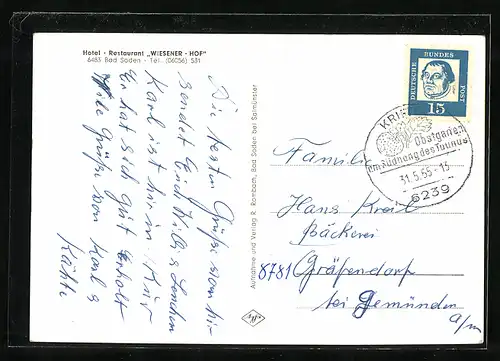 Hotel - Restaurant „WIESENER - HOF"
6483 Bad Soden - Tel. (06056) 531
Die besten Grüße von hir
sendet Euch
Karl ist hir in Kur
Er hat sich gut erholt
Viele Grüße von Karl &
Käthe
Aufnahme und Verlag R. Rombam, Bad Soden bei Salmünster
DEUTSCHE BUNDES POST
15
KRIF
Obstgarten
am Südhang des Taunus
31.5.65 - 15
6239
Familie
Hans Kreil
Bäckerei
8781 Gräfendorf
bei Gemünden
a/m